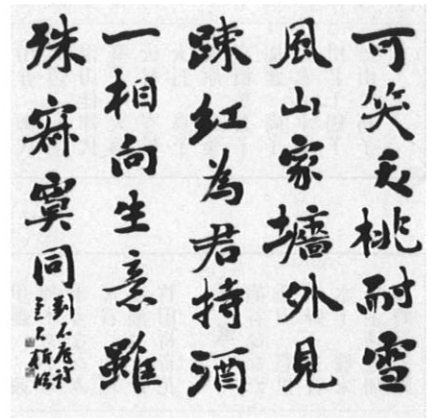 可笑夭桃耐雪
風山家墻外見
踈紅為君持酒
一相向生意雖
殊寂寞同